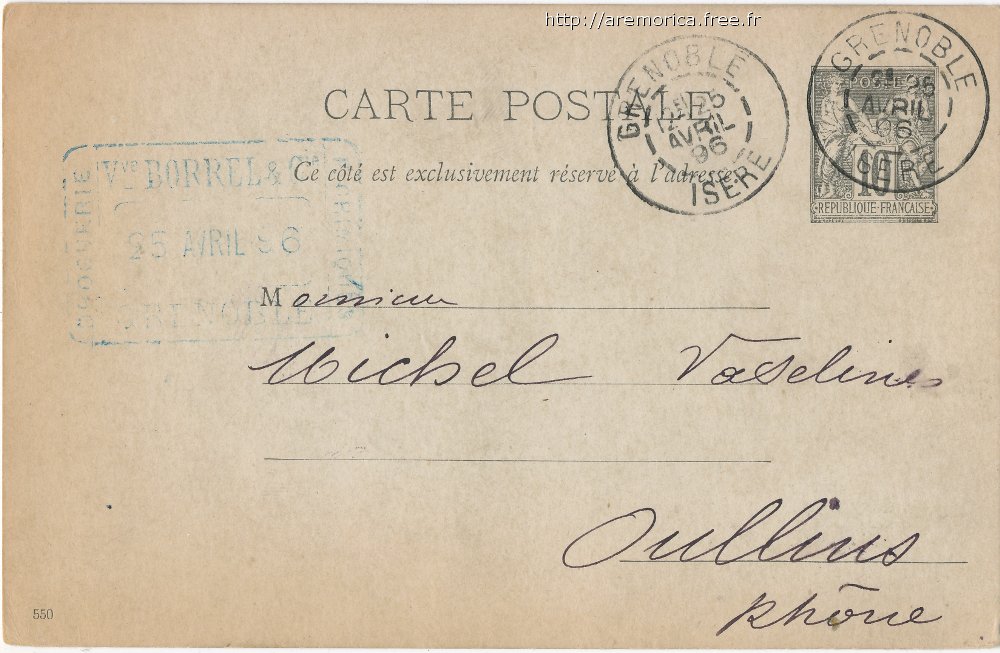 http://aremorica.free.fr
CARTE POSTALE
Ce côté est exclusivement réservé à l'adresse.
GRENOBLE
25
AVRIL
96
ISÈRE
GRENOBLE
25
AVRIL
96
ISÈRE
POSTES
10
REPUBLIQUE FRANCAISE
DROGUERIE
Vve BORREL & Cie
25 AVRIL 96
GRENOBLE
Monsieur
Michel Vaselines
Oullins
Rhône
550